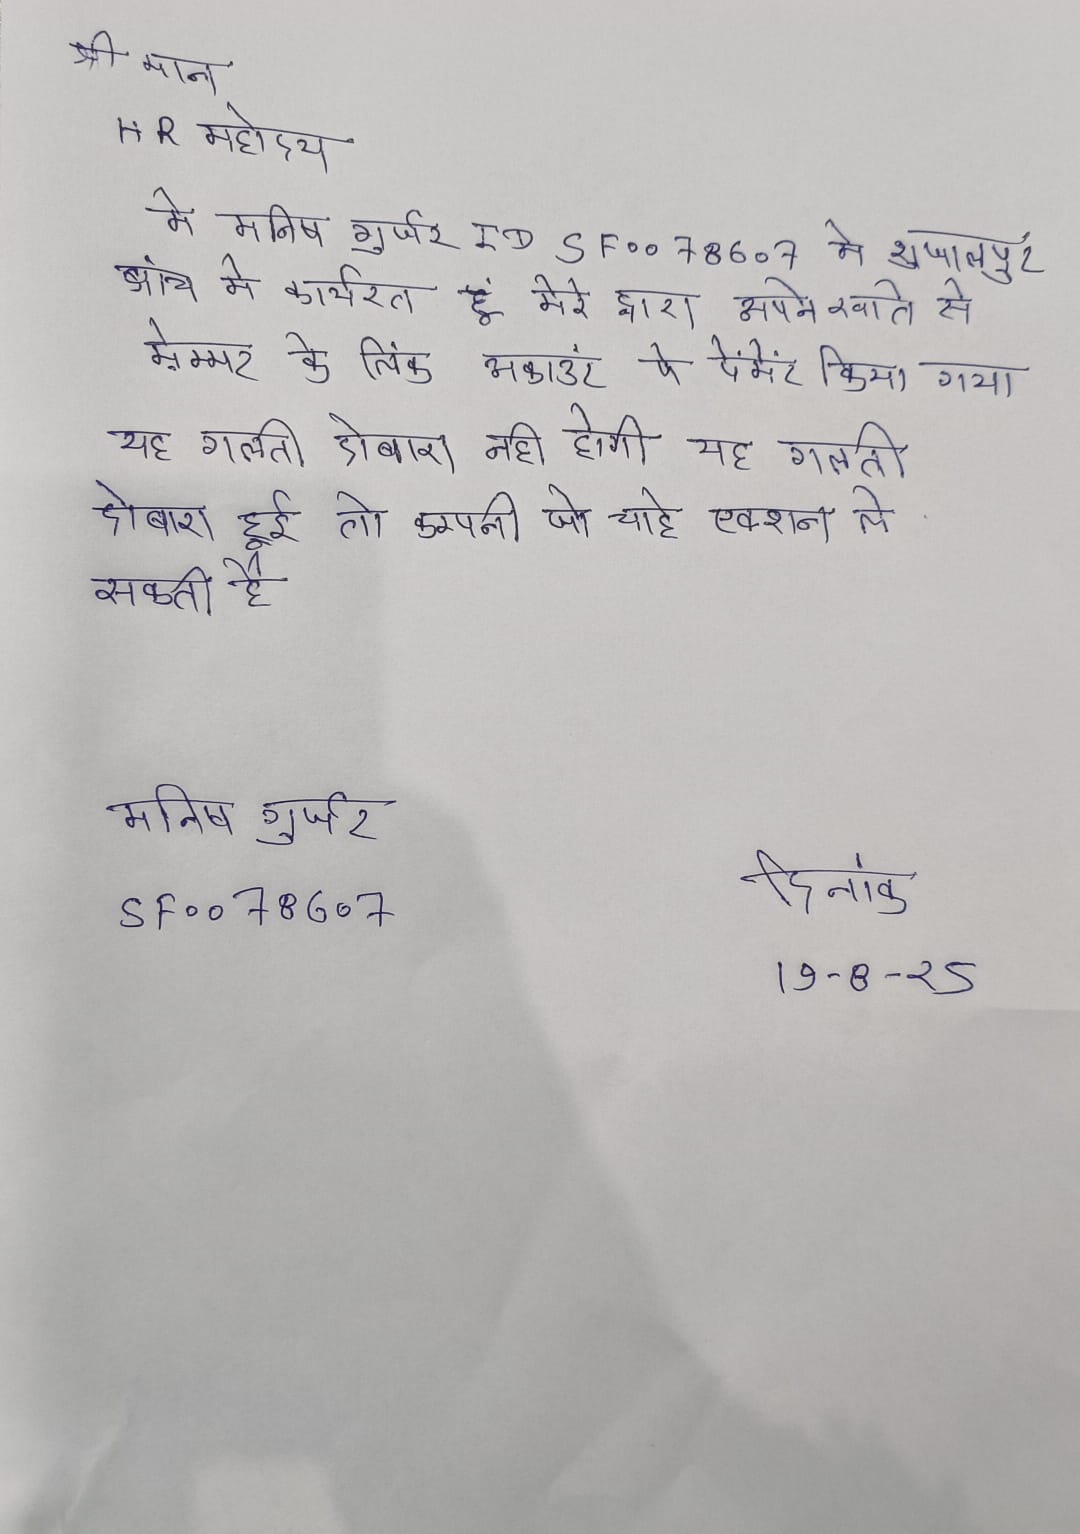 श्री मान
HR महोदय
मे मनिष गुर्जर ID SF0078607 मे शुजालपुर
ब्रांच मे कार्यरत हुं मेरे द्वारा अपने खाते से
मेम्मर के लिंक अकाउंट पे पेंमेंट किया गया
यह गलती दोबारा नही होगी यह गलती
दोबारा हूई तो कम्पनी जो चाहे एक्शन ले
सकती है
मनिष गुर्जर
SF0078607
दिनांक
19-8-25